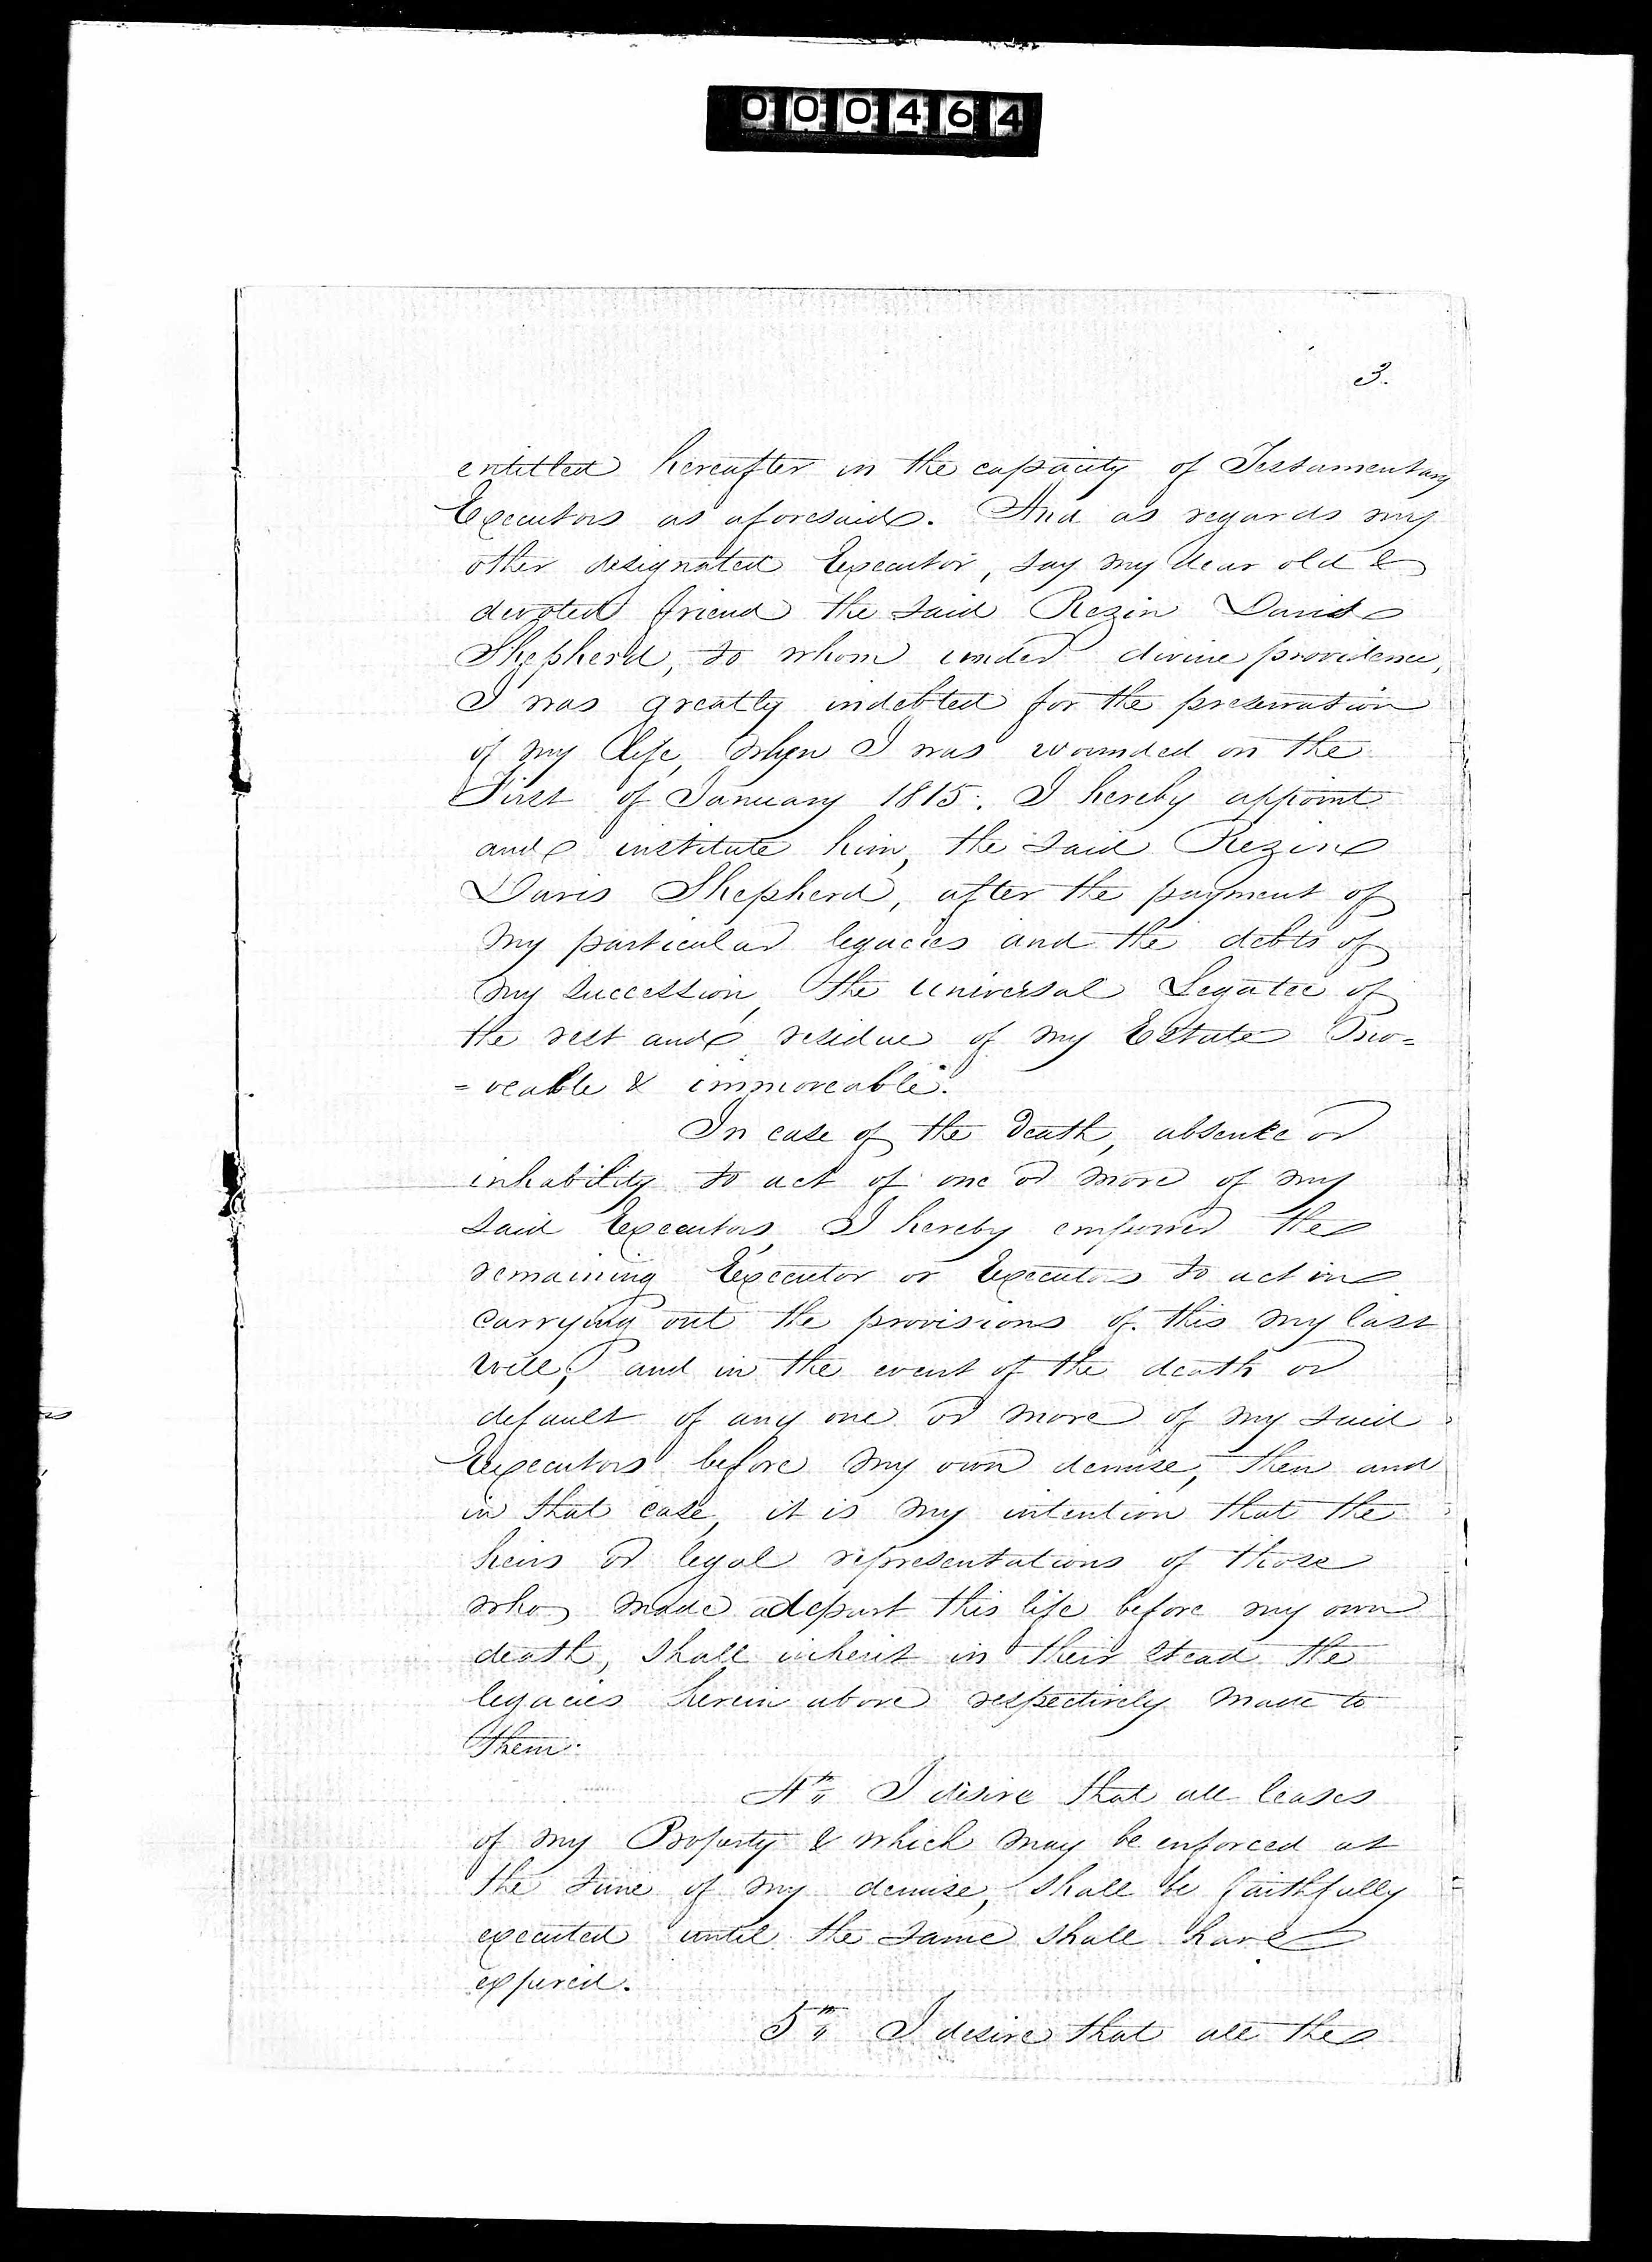 000464
3.
entitled hereafter in the capacity of Testamentary
Executors as aforesaid. And as regards my
other designated Executor, say my dear old &
devoted friend the said Rezin David
Shepherd, to whom under divine providence,
I was greatly indebted for the preservation
of my life, when I was wounded on the
First of January 1815. I hereby appoint
and institute him, the said Rezin
Davis Shepherd, after the payment of
my particular legacies and the debts of
my succession, the universal Legatee of
the rest and residue of my Estate mo=
=veable & immoveable.
In case of the death, absence or
inhability to act of one or more of my
said Executors, I hereby empower the
remaining Executor or Executors to act in
carrying out the provisions of this my last
will, and in the event of the death or
default of any one or more of my said
Executors before my own demise, then and
in that case, it is my intention that the
heirs or legal representations of those
who made adepart this life before my own
death, shall inherit in their stead the
legacies herein above respectively made to
them.
4th I desire that all leases
of my Property & which may be enforced at
the time of my demise, shall be faithfully
executed until the same shall have
expired.
5th I desire that all the